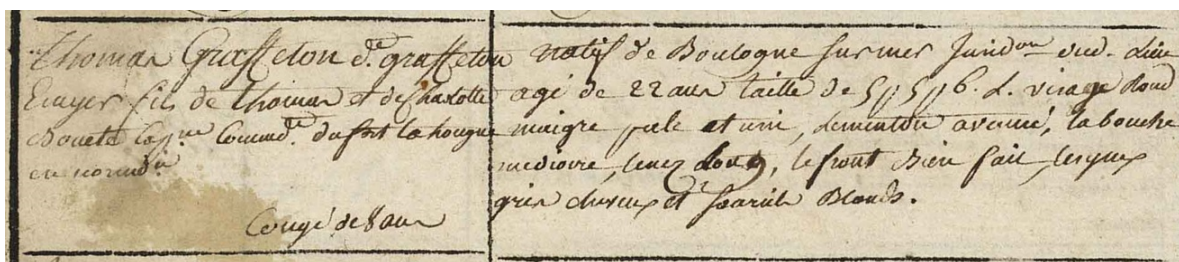 Thomas Graffeton d.t graffeton
Ecuyer fils de thomas et de Charlotte
Cap.ne Command.t du fort la hougue
en normd.ie
Congé de 8 ans
natif de Boulogne sur mer Juridon dud. lieu
agé de 22 ans taille de 5 p 5 p 6. L. visage Rond
maigre pale et uni, le menton avancé, la bouche
mediocre, le nez Long, le front Bien fait, les yeux
gris cheveux et sourcils Blonds.